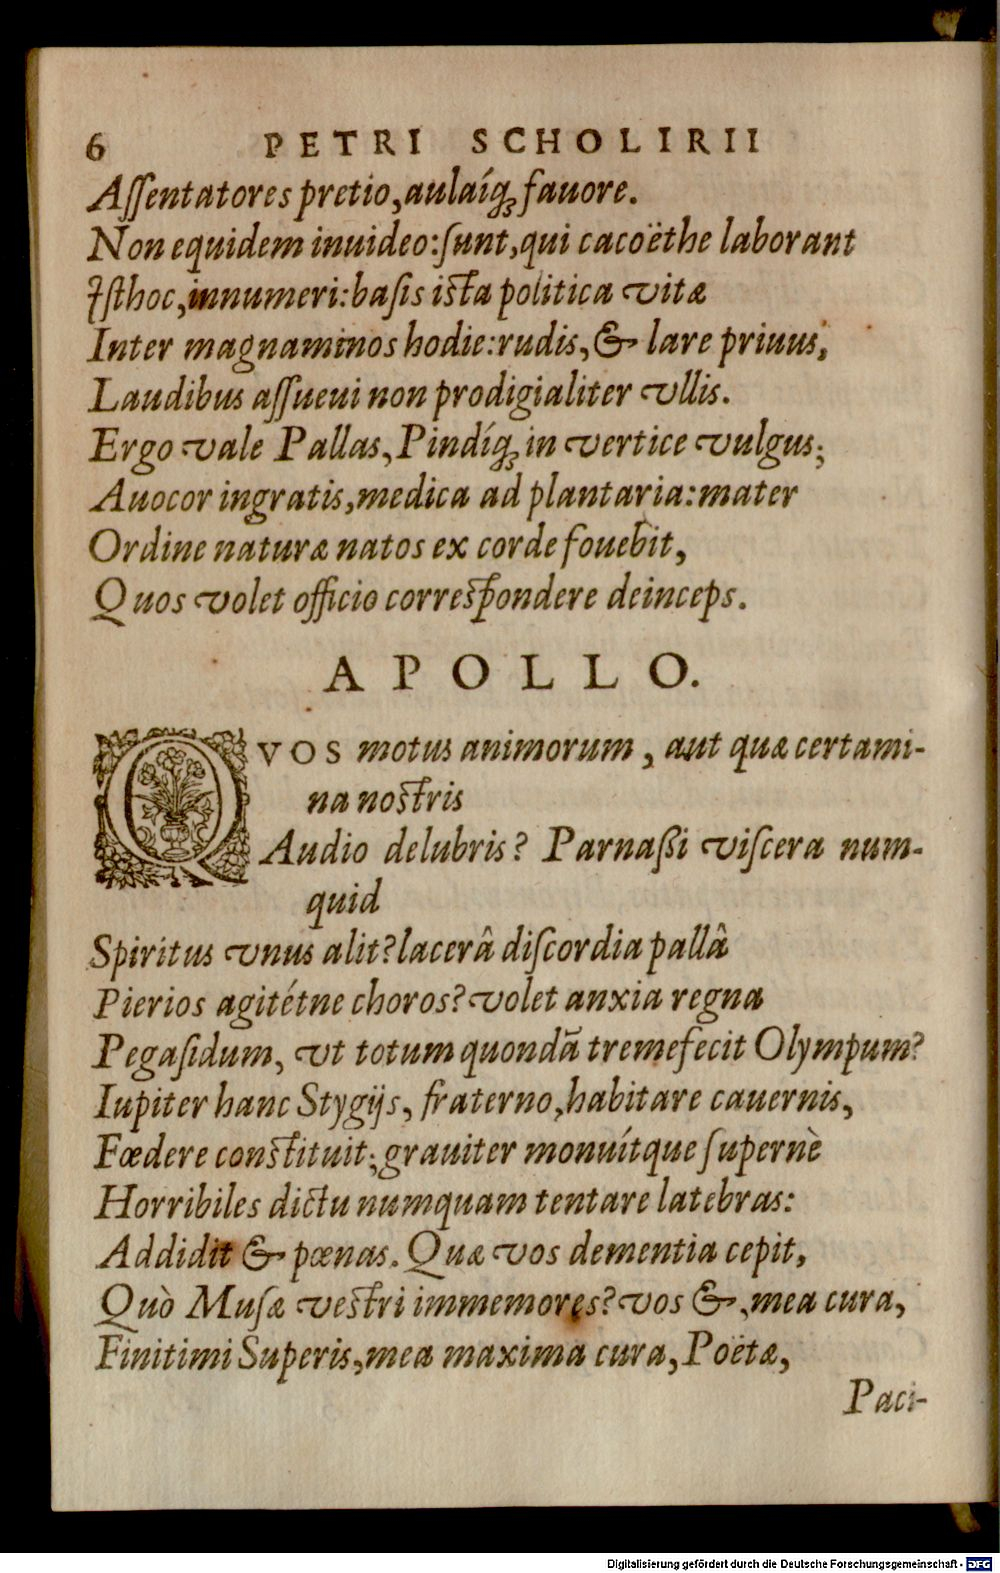 6 PETRI SCHOLIRII
Aſſentatores pretio, aulaíq́ꝫ fauore.
Non equidem inuideo: ſunt, qui cacoëthe laborant
Iſthoc, innumeri: baſis iſta politica vitæ
Inter magnaminos hodie: rudis, & lare priuus,
Laudibus aſſueui non prodigialiter vllis.
Ergo vale Pallas, Pindíqꝫ in vertice vulgus;
Auocor ingratis, medica ad plantaria: mater
Ordine naturæ natos ex corde fouebit,
Quos volet officio correſpondere deinceps.
APOLLO.
QVOS motus animorum, aut quæ certami-
na noſtris
Audio delubris? Parnaßi viſcera num-
quid
Spiritus vnus alit? lacerâ diſcordia pallâ
Pierios agitétne choros? volet anxia regna
Pegaſidum, vt totum quondã tremefecit Olympum?
Iupiter hanc Stygijs, fraterno, habitare cauernis,
Fœdere conſtituit; grauiter monuítque ſupernè
Horribiles dictu numquam tentare latebras:
Addidit & pœnas. Quæ vos dementia cepit,
Quò Muſæ veſtri immemores? vos &, mea cura,
Finitimi Superis, mea maxima cura, Poëtæ,
Paci-
Digitalisierung gefördert durch die Deutsche Forschungsgemeinschaft - DFG